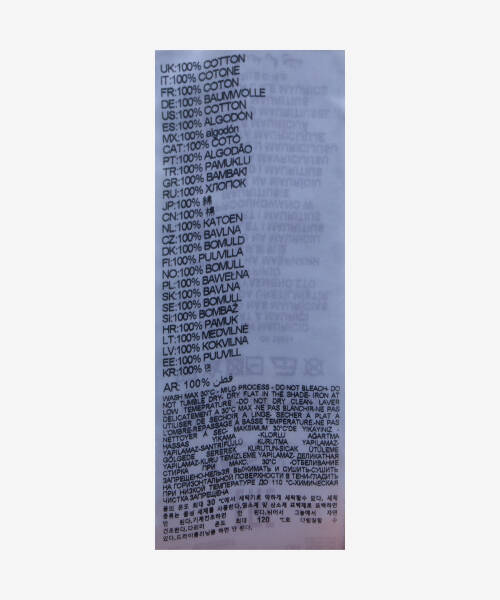 UK:100% COTTON
IT:100% COTONE
FR:100% COTON
DE:100% BAUMWOLLE
US:100% COTTON
ES:100% ALGODÓN
MX:100% algodón
CAT:100% COTÓ
PT:100% ALGODÃO
TR:100% PAMUKLU
GR:100% BAMBAKI
RU:100% ХЛОПОК
JP:100% 綿
CN:100% 棉
NL:100% KATOEN
CZ:100% BAVLNA
DK:100% BOMULD
FI:100% PUUVILLA
NO:100% BOMULL
PL:100% BAWEŁNA
SK:100% BAVLNA
SE:100% BOMULL
SI:100% BOMBAŽ
HR:100% PAMUK
LT:100% MEDVILNĖ
LV:100% KOKVILNA
EE:100% PUUVILL
KR:100% 면
AR: 100% قطن
WASH MAX 30°C - MILD PROCESS - DO NOT BLEACH- DO
NOT TUMBLE DRY- DRY FLAT IN THE SHADE- IRON AT
LOW TEMEPRATURE -DO NOT DRY CLEAN. LAVER
DELICATEMENT A 30°C MAX -NE PAS BLANCHIR-NE PAS
UTILISER DE SECHOIR À LINGE- SECHER À PLAT A
L'OMBRE-REPASSAGE À BASSE TEMPERATURE-NE PAS
NETTOYER À SEC. MAKSIMUM 30°C'DE YIKAYINIZ -
HASSAS YIKAMA -KLORLU AĞARTMA
YAPILAMAZ-SANTRİFÜJLÜ KURUTMA YAPILAMAZ-
GÖLGEDE SEREREK KURUTUN-SICAK ÜTÜLEME
YAPILAMAZ-KURU TEMİZLEME YAPILAMAZ. ДЕЛИКАТНАЯ
СТИРКА ПРИ МАКС. 30°C -ОТБЕЛИВАНИЕ
ЗАПРЕЩЕНО-НЕЛЬЗЯ ВЫЖИМАТЬ И СУШИТЬ-СУШИТЬ
НА ГОРИЗОНТАЛЬНОЙ ПОВЕРХНОСТИ В ТЕНИ-ГЛАДИТЬ
ПРИ НИЗКОЙ ТЕМПЕРАТУРЕ ДО 110 °C-ХИМИЧЕСКАЯ
ЧИСТКА ЗАПРЕЩЕНА
물의 온도 최대 30 ℃에서 세탁기로 약하게 세탁할수 있다. 세제
종류는 중성 세제를 사용한다.
안 된다.기계건조하면 안 된다. 그늘에서 자연
건조한다.다리미 온도 최대 120 ℃로 다림질할 수
있다.드라이클리닝을 하면 안 된다.